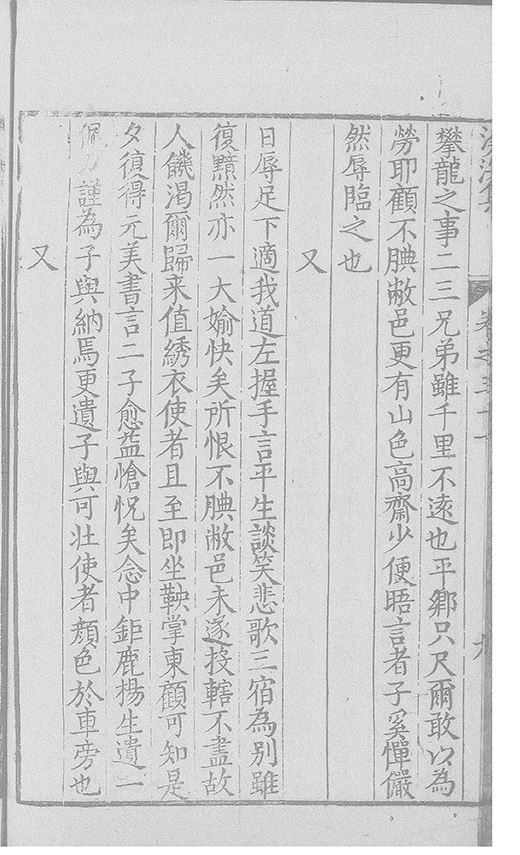 攀龍之事二三兄弟雖千里不遠也平鄉只尺爾敢以為
勞耶顧不腆敝邑更有山色高齋少便晤言者子奚憚儼
然辱臨之也
又
日辱足下適我道左握手言平生談笑悲歌三宿為別雖
復黯然亦一大媮快矣所恨不腆敝邑未遂投轄不盡故
人饑渴爾歸来值綉衣使者且至即坐鞅掌東顧可知是
夕復得元美書言二子愈益愴怳矣念中鉅鹿楊生遺一
佩刀謹為子與納焉更遺子與可壯使者顔色於車旁也
又